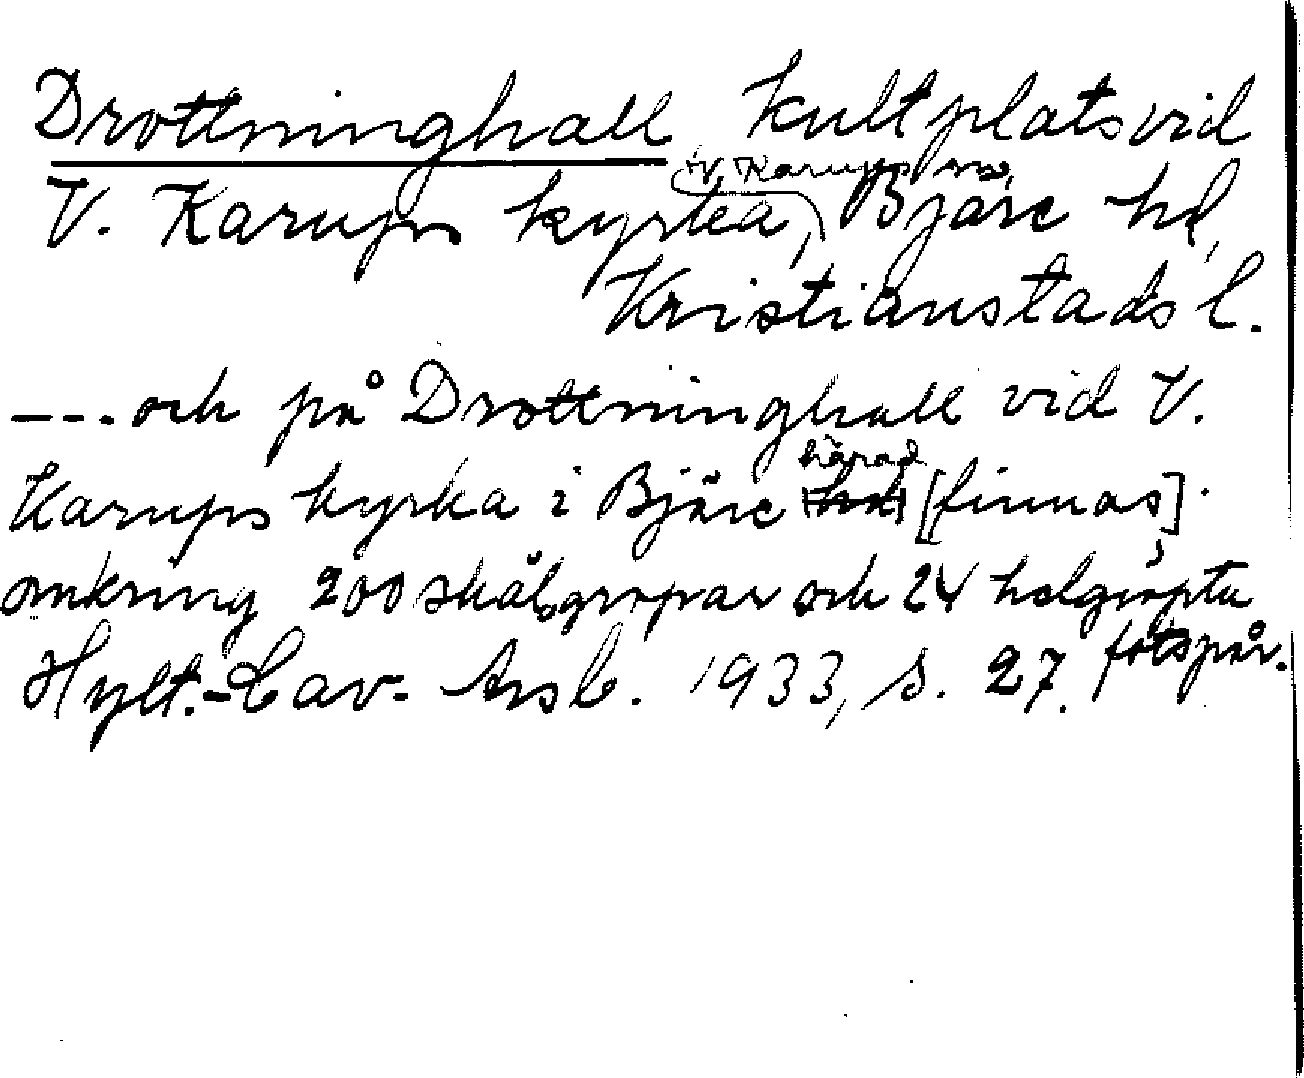 Drottninghall kultplats vid
V. Karups kyrka, V. Karups sn, Bjäre hd,
Kristianstads l.
---och på Drottninghall vid V.
Karups kyrka i Bjäre härad [finnas]
omkring 200 skålgropar och 24 helgröpta
fotspår.
Hylt.-Cav. Årsb. 1933, s. 27.